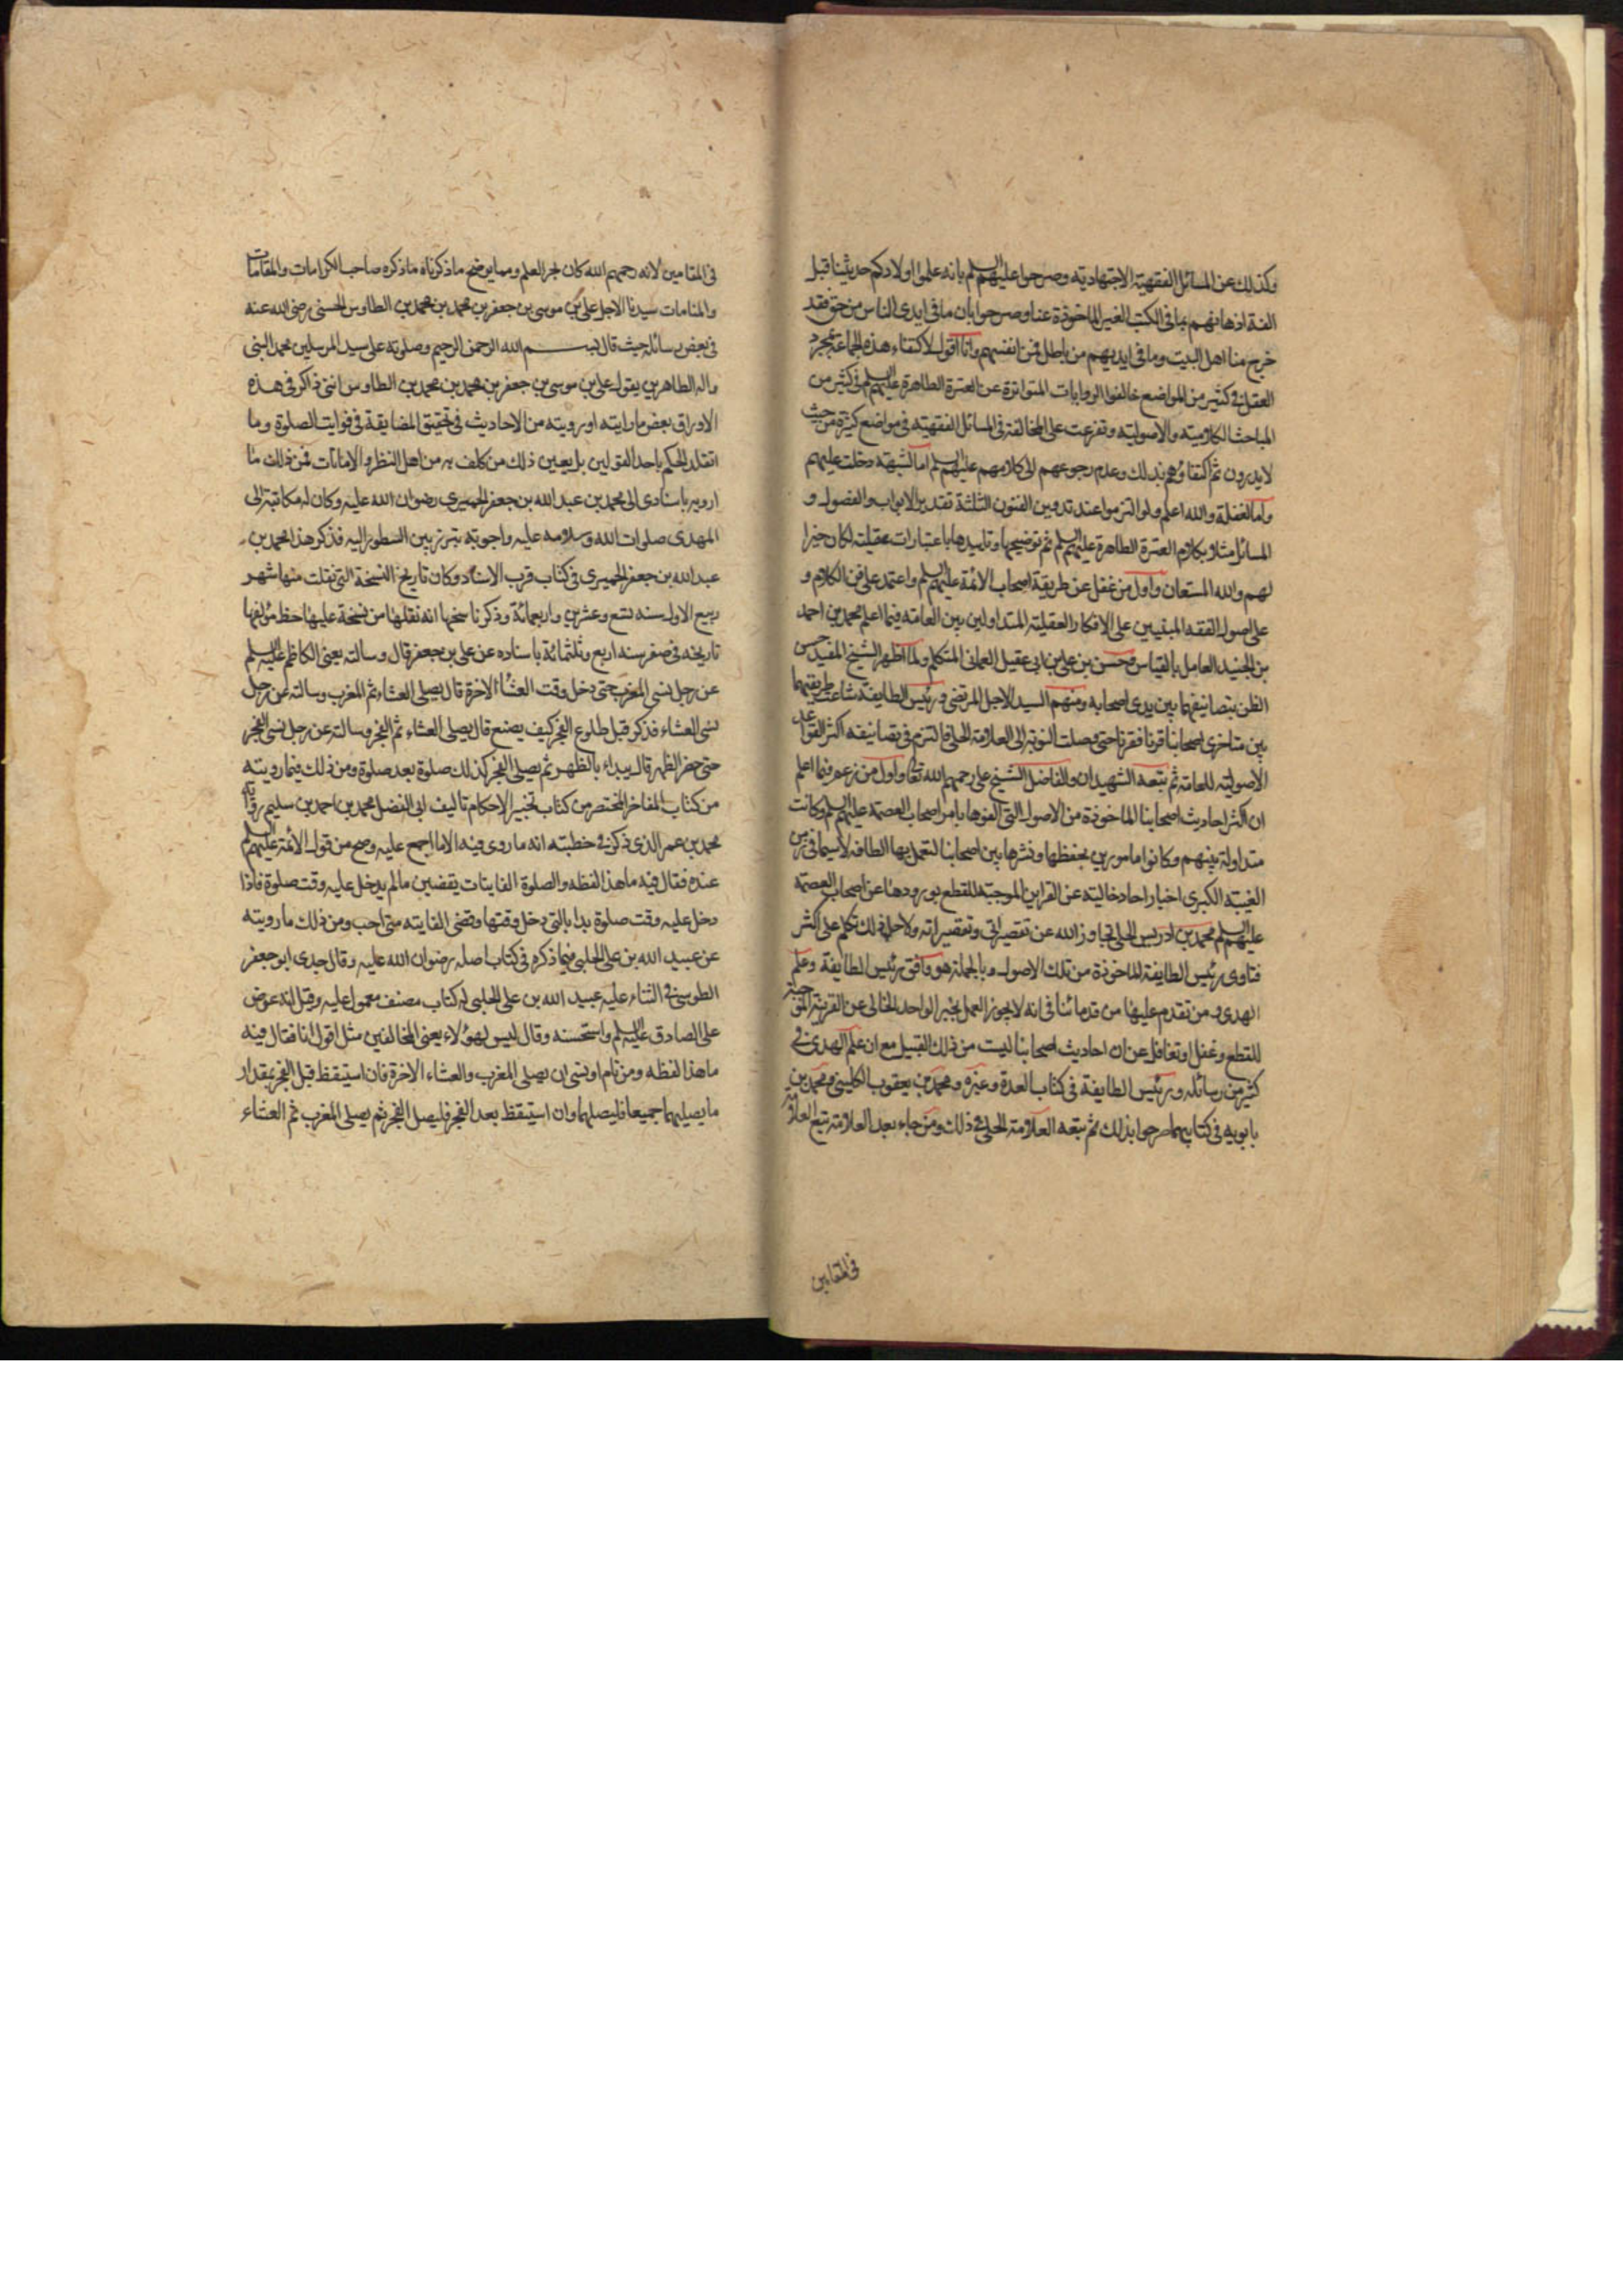 وكذلك عن المسائل الفقهية الاجتهادية وصرحوا عليهم السلم بانه علموا اولادكم حديثنا قبل
الفة اذهانهم بما فى الكتب الغير الماخوذة عنا وصرحوا بان ما فى ايدى الناس من حق فقد
خرج منا اهل البيت وما فى ايديهم من باطل فمن انفسهم وانا اقول لاكتفاء هذه الجماعة بمجرد
العقل فى كثير من المواضع خالفوا الروايات المتواترة عن العترة الطاهرة عليهم السلم فى كثير من
المباحث الكلامية والاصولية وتفرعت على المخالفة فى المسائل الفقهية فى مواضع كثيرة من حيث
لايدرون ثم اكتفاؤهم بذلك وعدم رجوعهم الى كلامهم عليهم السلم اما لشبهة دخلت عليهم
واما لغفلة والله اعلم ولو التزموا عند تدوين الفنون الثلثة تقدير الابواب والفصول و
المسائل مثلا بكلام العترة الطاهرة عليهم السلم ثم توضيحها وتاييدها باعتبارات عقلية لكان خيرا
لهم والله المستعان واول من غفل عن طريقة اصحاب الائمة عليهم السلم واعتمد على فن الكلام و
على اصول الفقه المبنيين على الافكار العقلية المتداولين بين العامة فيما اعلم محمد بن احمد
بن الجنيد العامل بالقياس وحسن بن على بن ابى عقيل العمانى المتكلم ولما اظهر الشيخ المفيد حسن
الظن بتصانيفهما بين يدى اصحابه ومنهم السيد الاجل المرتضى ورئيس الطايفة شاعت طريقتهما
بين متاخرى اصحابنا قرنا فقرنا حتى وصلت النوبة الى العلامة الحلى فالتزم فى تصانيفه اكثر القواعد
الاصولية للعامة ثم تبعه الشهيدان والفاضل الشيخ على رحمهم الله تعالى واول من زعم فيما اعلم
ان اكثر احاديث اصحابنا الماخوذة من الاصول التى الفوها بامر اصحاب العصمة عليهم السلم وكانت
متداولة بينهم وكانوا مامورين بحفظها ونشرها بين اصحابنا لتعمل بها الطافه لاسيما فى زمن
الغيبة الكبرى اخبار احاد خالية عن القراين الموجبة للقطع بورودها عن اصحاب العصمة
عليهم السلم محمد بن ادريس الحلى تجاوز الله عن تقصيراتى وتقصيراته ولاجل ذلك تكلم على اكثر
فتاوى رئيس الطايفة الماخوذة من تلك الاصول وبالجملة هو وافق رئيس الطايفة وعلم
الهدى ومن تقدم عليهما من قدمائنا فى انه لايجوز العمل بخبر الواحد الخالى عن القرينة الموجبة
للقطع وغفل او تغافل عن ان احاديث اصحابنا ليست من ذلك القبيل مع ان علم الهدى فى
كثير من رسائله ورئيس الطايفة فى كتاب العدة وغيره ومحمد بن يعقوب الكلينى ومحمد بن
بابويه فى كتابيهما صرحوا بذلك ثم تبعه العلامة الحلى فى ذلك ومن جاء بعد العلامة تبع العلامة
فى المقامين
فى المقامين لانه رحمهم الله كان بحر العلم ومما يوضح ما ذكرناه ما ذكره صاحب الكرامات والمقامات
والمنامات سيدنا الاجل على بن موسى بن جعفر بن محمد بن محمد بن الطاوس الحسنى رضى الله عنه
فى بعض رسائله حيث قال بسم الله الرحمن الرحيم وصلوته على سيد المرسلين محمد النبى
واله الطاهرين يقول على بن موسى بن جعفر بن محمد بن محمد بن الطاوس اننى ذاكر فى هذه
الاوراق بعض ما رايته او رويته من الاحاديث فى تحقيق المضايقة فى فوايت الصلوة وما
اتقلد الحكم باحد القولين بل يعين ذلك من كلف به من اهل النظر والامانات فمن ذلك ما
ارويه باسنادى الى محمد بن عبد الله بن جعفر الحميرى رضوان الله عليه وكان له مكاتبة الى
المهدى صلوات الله وسلامه عليه واجوبة تبرز بين السطور اليه فذكر هذا محمد بن
عبد الله بن جعفر الحميرى فى كتاب قرب الاسناد وكان تاريخ النسخة التى نقلت منها شهر
ربيع الاول سنه تسع وعشرين واربعمائة وذكر ناسخها انه نقلها من نسخة عليها خط مؤلفها
تاريخه فى صفر سنه اربع وثلثمائة باسناده عن على بن جعفر قال وسالته يعنى الكاظم عليه السلم
عن رجل نسى المغرب حتى دخل وقت العشاء الاخرة قال يصلى العشاء ثم المغرب وسالته عن رجل
نسى العشاء فذكر قبل طلوع الفجر كيف يصنع قال يصلى العشاء ثم الفجر وسالته عن رجل نسى الفجر
حتى حضر الظهر قال يبداء بالظهر ثم يصلى الفجر كذلك صلوة بعد صلوة ومن ذلك فيما رويته
من كتاب الفاخر المختصر من كتاب تخيير الاحكام تاليف ابى الفضل محمد بن احمد بن سليم رواية
محمد بن عمر الذى ذكر فى خطبته انه ما روى فيه الا ما اجمع عليه وصح من قول الائمة عليهم السلم
عنده فقال فيه ما هذا لفظه والصلوة الفايتات يقضين مالم يدخل عليه وقت صلوة فاذا
دخل عليه وقت صلوة بدا بالتى دخل وقتها وقضى الفايته متى احب ومن ذلك ما رويته
عن عبيد الله بن على الحلبى فيما ذكره فى كتاب اصله رضوان الله عليه وقال جدى ابو جعفر
الطوسى فى الثناء عليه عبيد الله بن على الحلبى له كتاب مصنف معمول عليه وقيل انه عرض
على الصادق عليه السلم واستحسنه وقال ليس لهؤلاء يعنى المخالفين مثل اقول انا فقال فيه
ما هذا لفظه ومن نام او نسى ان يصلى المغرب والعشاء الاخرة فان استيقظ قبل الفجر بمقدار
ما يصليهما جميعا فليصلهما وان استيقظ بعد الفجر فليصل الفجر ثم يصلى المغرب ثم العشاء